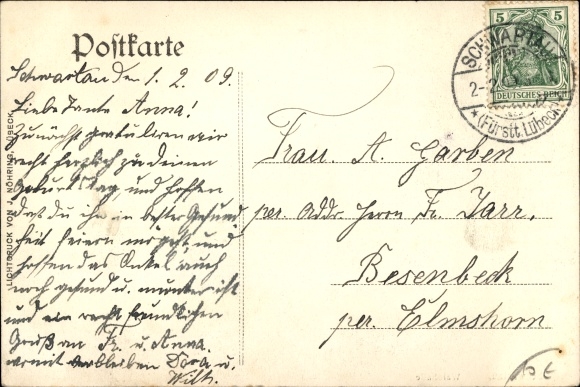 Postkarte
Schwartau den 1. 2. 09.
Liebe Tante Anna!
Zunächst gratulieren wir
recht herzlich zu deinem
Geburtstag, und hoffen
daß du ihn in bester Gesund
heit feiern mögest, und
hoffen das Onkel auch
noch gesund u. munter ist
und ein recht freundlichen
Gruß an Fr. u. Anna.
womit verbleiben Dora u.
Wilh.
LICHTDRUCK VON J. NÖHRING, LÜBECK
5 5
DEUTSCHES REICH
SCHWARTAU
2-2
*(Fürstt. Lübeck)
Frau A. Garben
per Addr. Herrn Fr. Tarr.
Besenbeck
per. Elmshorn